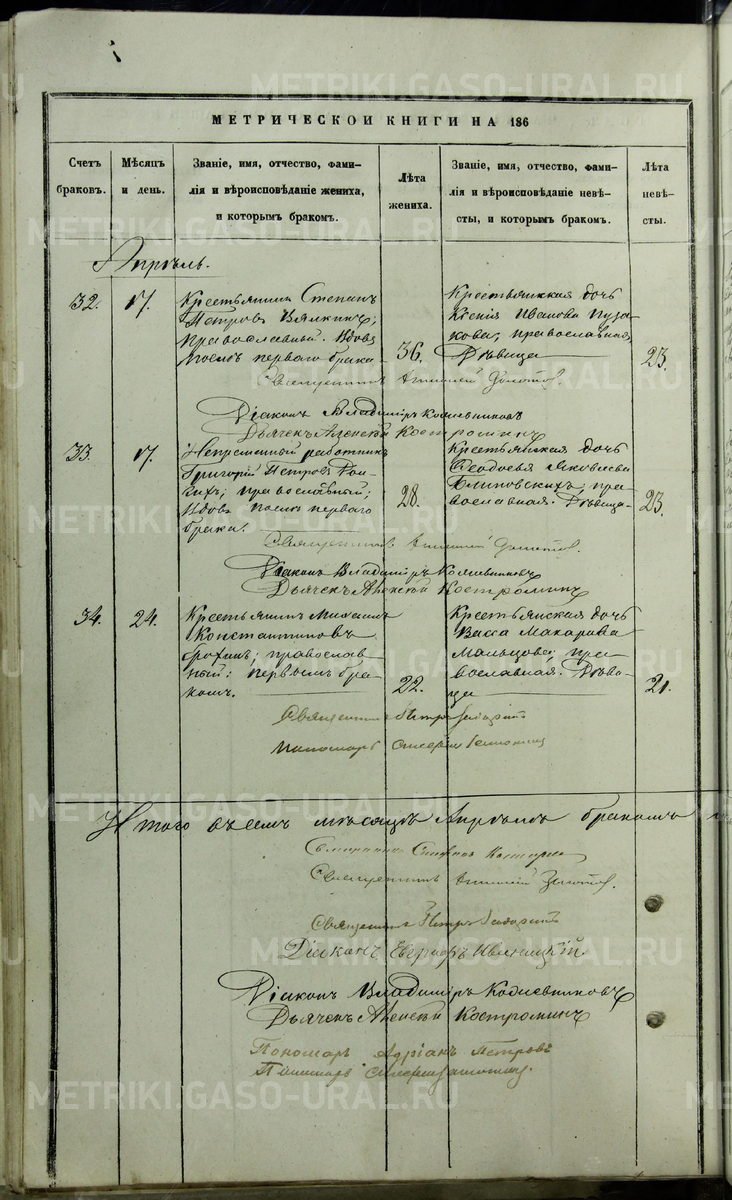 METRIKI.GASO-URAL.RU
МЕТРИЧЕСКОИ КНИГИ НА 186
Счетъ браковъ.
Мѣсяцъ и день.
Званіе, имя, отчество, фами-
лія и вѣроисповѣданіе жениха,
и которымъ бракомъ.
Лѣта жениха.
Званіе, имя, отчество, фами-
лія и вѣроисповѣданіе невѣ-
сты, и которымъ бракомъ.
Лѣта невѣ-
сты.
Апрѣль.
32. 17.
Крестьянинъ Степанъ
Петровъ Вялкинъ;
православный. Вдовъ
послѣ перваго брака
36.
Крестьянская дочь
Ксенія Иванова Пуза-
кова, православная,
Дѣвица
23.
Священникъ
Діаконъ Владиміръ Кожевниковъ
Дьячекъ Алексѣй Костроминъ
33. 17.
Непремѣнный работникъ
Григорій Петровъ
православный;
Вдовъ послѣ перваго
брака.
28.
Крестьянская дочь
Ѳеодосья Яковлева
Блиновскихъ, пра-
вославная. Дѣвица
23.
Священникъ
Діаконъ Владиміръ Кожевниковъ
Дьячекъ Алексѣй Костроминъ
34. 24.
Крестьянинъ Михаилъ
Константиновъ
православ
ный; первымъ бра-
комъ.
22.
Крестьянская дочь
Васса Макарова
Мальцова; пра-
вославная. Дѣви-
ца
21.
Священникъ Петръ
Пономарь
Итого въ семъ мѣсяцѣ Апрѣлѣ браковъ
Священникъ
Священникъ Петръ
Діаконъ Евграфъ Ивановъ
Діаконъ Владиміръ Кожевниковъ
Дьячекъ Алексѣй Костроминъ
Пономарь Адріанъ Петровъ
Пономарь